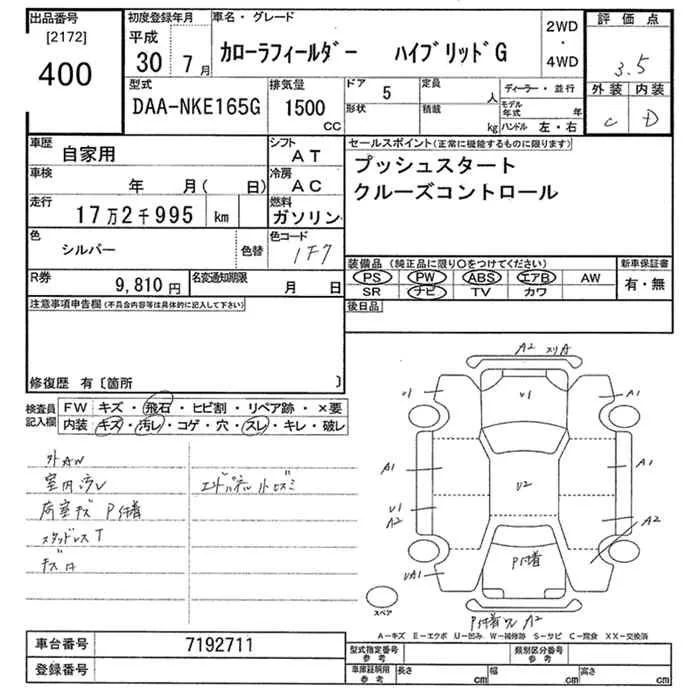 出品番号
[2172]
400
初度登録年月
平成
30 7月
車名・グレード
カローラフィールダー ハイブリッドG
2WD
・
4WD
評価点
3.5
外装 内装
C D
型式
DAA-NKE165G
排気量
1500
CC
ドア 5
形状
定員 人
積載 kg
ディーラー・並行
モデル年式 年
ハンドル 左・右
車歴
自家用
シフト
AT
車検
年 月( 日)
冷房
AC
走行
17万2千995 km
燃料
ガソリン
色
シルバー
色替
色コード
1F7
R券
9,810円
名変通知期限
月 日
セールスポイント(正常に機能するものに限ります)
プッシュスタート
クルーズコントロール
装備品(純正品に限り○をつけてください)
PS PW ABS エアB AW
SR ナビ TV カワ
新車保証書
有・無
後日品
注意事項申告欄(不具合内容等は具体的に記入して下さい)
修復歴 有〔箇所 〕
検査員
記入欄
FW キズ・飛石・ヒビ割・リペア跡・×要
内装・キズ・汚レ・コゲ・穴・スレ・キレ・破レ
外AW
室内汚レ
荷室キズ P付着
スタッドレスT
キズ
A2 スリA
U1
U1
A1
A1
A1
U2
U1
A2
A2
UA1
P付着
P付着 ワレ A2
スペア
A-キズ E-エクボ U-凹み W-補修跡 S-サビ C-腐食 XX-交換済
車台番号 7192711
登録番号
型式指定番号
参考
類別区分番号
参考
車庫証明用
参考
長さ cm 幅 cm 高さ cm